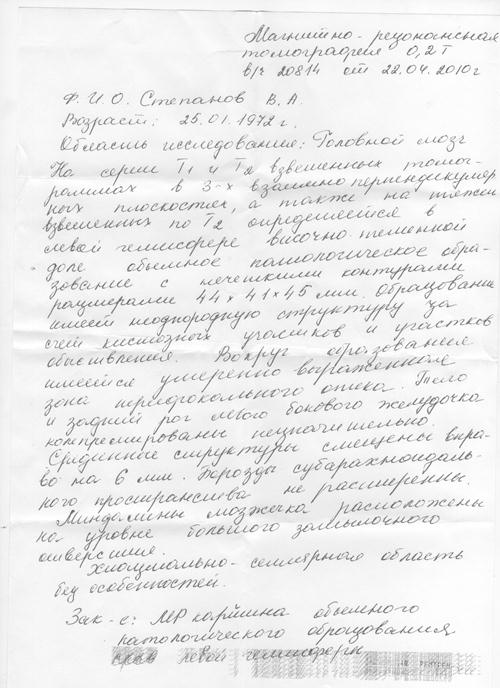 Магнитно-резонансная
томография 0,2 Т
в/ч 20814 от 22.04.2010г
Ф.И.О. Степанов В.А.
Возраст: 25.01.1972г.
Область исследования: Головной мозг
На серии Т1 и Т2 взвешенных томог-
раммах в 3-х взаимно перпендикуляр
ных плоскостях, а также на
взвешенных по Т2 определяется в
левой гемисфере височно-теменной
доле объемное патологическое обра-
зование с нечеткими контурами
размерами 44×41×45 мм. Образование
имеет неоднородную структуру за
счет кистозных участков и участков
обызвествления. Вокруг образования
имеется умеренно выраженная
зона перифокального отека. Тело
и задний рог левого бокового желудочка
компремированы незначительно.
Срединные структуры смещены впра-
во на 6 мм. Борозды субарахноидаль-
ного пространства не расширены.
Миндалины мозжечка расположены
на уровне большого затылочного
отверстия.
Хиазмально-селлярная область
без особенностей.
Зак-е: МР картина объемного
патологического образования
левой гемисферы